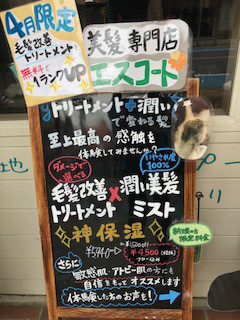 4月限定
毛髪改善
トリートメント
無料で
ランクUP
美髪専門店
エスコート
トリートメント≠潤い
で変わる髪
至上最高の感触を
体験してみませんか?
ダメージで
選べる
いやされ度
100%
毛髪改善×潤い美髪
トリートメント ミスト
神保湿
¥5940→
¥4500(税抜)
さらに
敏感肌・アトピー肌の方にも
自信をもってオススメします
体験した方のお声を!